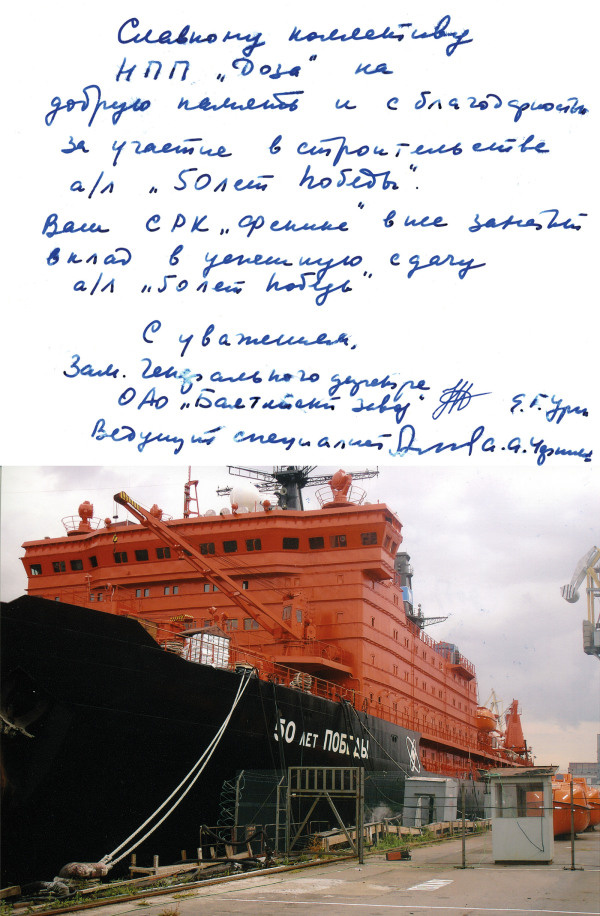 Славному коллективу
НПП „Доза“ на
добрую память и с благодарностью
за участие в строительстве
а/л „50 лет Победы“.
Ваш СРК „Феникс“ внес заметный
вклад в успешную сдачу
а/л „50 лет Победы“
С уважением,
Зам. Генерального директора
ОАО „Балтийский завод“
Ведущий специалист А.А.
50 ЛЕТ ПОБЕДЫ